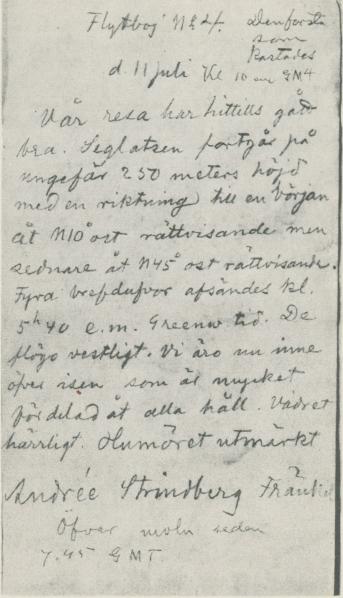 Flytboj N:o 4. Den första
som
kastades
d. 11 juli Kl 10 em GMT
Vår resa har hittills gått
bra. Seglatsen fortgår på
ungefär 250 meters höjd
med en riktning till en början
åt N10° ost rättvisande men
sednare åt N45° ost rättvisande.
Fyra brefdufvor afsändes kl.
5h 40 e.m. Greenw. tid. De
flögo vestligt. Vi äro nu inne
öfver isen som är mycket
fördelad åt alla håll. Vädret
härrligt. Humöret utmärkt
Andrée Strindberg Frænkel
Öfver moln sedan
7.45 GMT